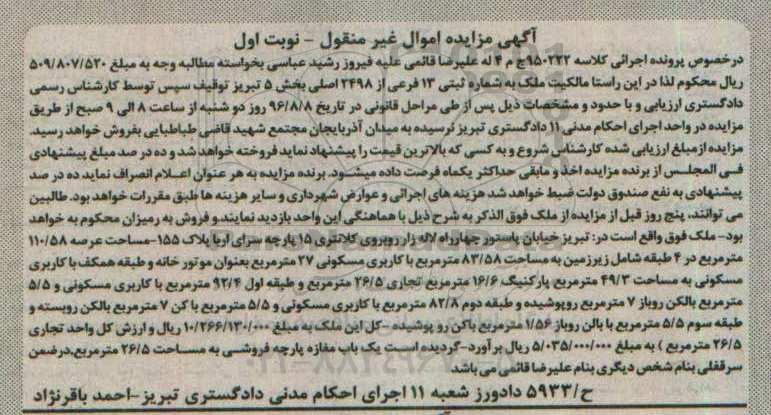 آگهی مزایده اموال غیر منقول - نوبت اول
درخصوص پرونده اجرائی کلاسه ۹۵۰۲۲۲ج م ۴ له علیرضا قائمی علیه فیروز رشید عباسی بخواسته مطالبه وجه به مبلغ ۵۰۹/۸۰۷/۵۲۰
ریال محکوم لذا در این راستا مالکیت ملک به شماره ثبتی ۱۳ فرعی از ۲۴۹۸ اصلی بخش ۵ تبریز توقیف سپس توسط کارشناس رسمی
دادگستری ارزیابی و با حدود و مشخصات ذیل پس از طی مراحل قانونی در تاریخ ۹۶/۸/۸ روز دو شنبه از ساعت ۸ الی ۹ صبح از طریق
مزایده در واحد اجرای احکام مدنی ۱۱ دادگستری تبریز نرسیده به میدان آذربایجان مجتمع شهید قاضی طباطبایی بفروش خواهد رسید.
مزایده از مبلغ ارزیابی شده کارشناس شروع و به کسی که بالاترین قیمت را پیشنهاد نماید فروخته خواهد شد و ده در صد مبلغ پیشنهادی
فی المجلس از برنده مزایده اخذ و مابقی حداکثر یکماه فرصت داده میشود. برنده مزایده به هر عنوان اعلام انصراف نماید ده در صد
پیشنهادی به نفع صندوق دولت ضبط خواهد شد هزینه های اجرائی و عوارض شهرداری و سایر هزینه ها طبق مقررات خواهد بود. طالبین
می توانند، پنج روز قبل از مزایده از ملک فوق الذکر به شرح ذیل با هماهنگی این واحد بازدید نمایند.و فروش به رمیزان محکوم به خواهد
بود- ملک فوق واقع است در: تبریز خیابان پاستور چهارراه لاله زار روبروی کلانتری ۱۵ پارچه سرای اریا پلاک ۱۵۵-مساحت عرصه ۱۱۰/۵۸
مترمربع در ۴ طبقه شامل زیرزمین به مساحت ۸۳/۵۸ مترمربع با کاربری مسکونی ۲۷ مترمربع بعنوان موتور خانه و طبقه همکف با کاربری
مسکونی به مساحت ۴۹/۳ مترمربع پارکنیگ ۱۶/۶ مترمربع تجاری ۲۶/۵ مترمربع و طبقه اول ۹۲/۴ مترمربع با کاربری مسکونی و ۵/۵
مترمربع بالکن روباز ۷ مترمربع روپوشیده و طبقه دوم ۸۲/۸ مترمربع با کاربری مسکونی و ۵/۵ مترمربع با کن ۷ مترمربع بالکن روبسته و
طبقه سوم ۵/۵ مترمربع با بالن روباز ۱/۵۶ مترمربع باکن رو پوشیده -کل این ملک به مبلغ ۱۰/۲۶۶/۱۳۰/۰۰۰ ریال و ارزش کل واحد تجاری
۲۶/۵ مترمربع ) به مبلغ ۵/۰۳۵/۰۰۰/۰۰۰ ریال برآورد-گردیده است یک باب مغازه پارچه فروشی به مساحت ۲۶/۵ مترمربع.درضمن
سرقفلی بنام شخص دیگری بنام علیرضا قائمی می باشد
ح/۵۹۳۳ دادورز شعبه ۱۱ اجرای احکام مدنی دادگستری تبریز-احمد باقرنژاد